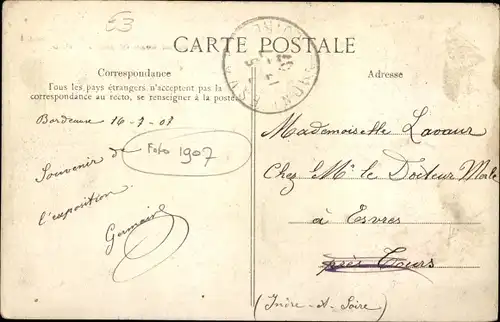 E3
CARTE POSTALE
Correspondance
Tous les pays étrangers n'acceptent pas la
correspondance au recto, se renseigner à la poste
Bordeaux 16-9-07
Souvenir de
Foto 1907
l'exposition
Germaine
Adresse
Mademoiselle Lavaur
Chez Mr le Docteur Mole
à Esvres
près Tours
(Indre-et-Loire)